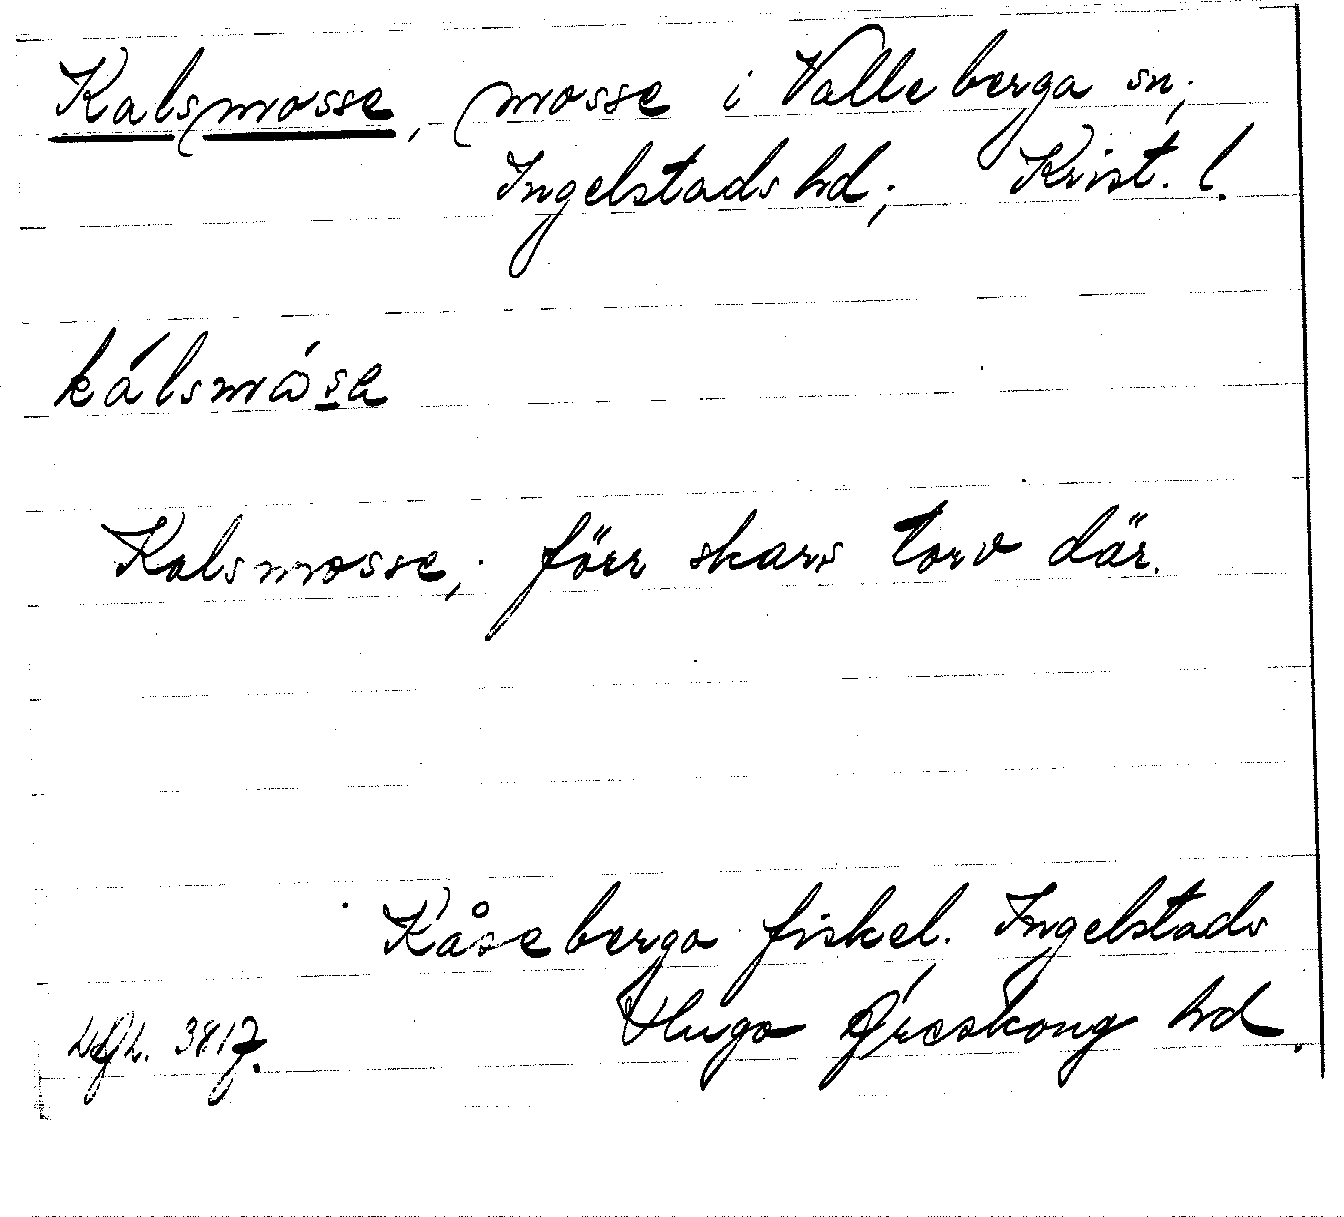 Kalsmosse, mosse i Valleberga sn;
Ingelstads hd; Krist. l.
kálsmóse
Kalsmosse; förr skars torv där.
Kåseberga fiskel. Ingelstads
Hugo hd.
3817.